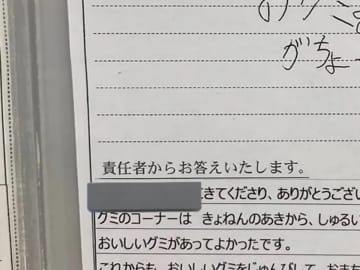 のグミ
がちょー
責任者からお答えいたします。
きてくださり、ありがとうござい
グミのコーナーは きょねんのあきから、しゅるい
おいしいグミがあってよかったです。
これからも、おいしいグミをじゅんびして、おまち